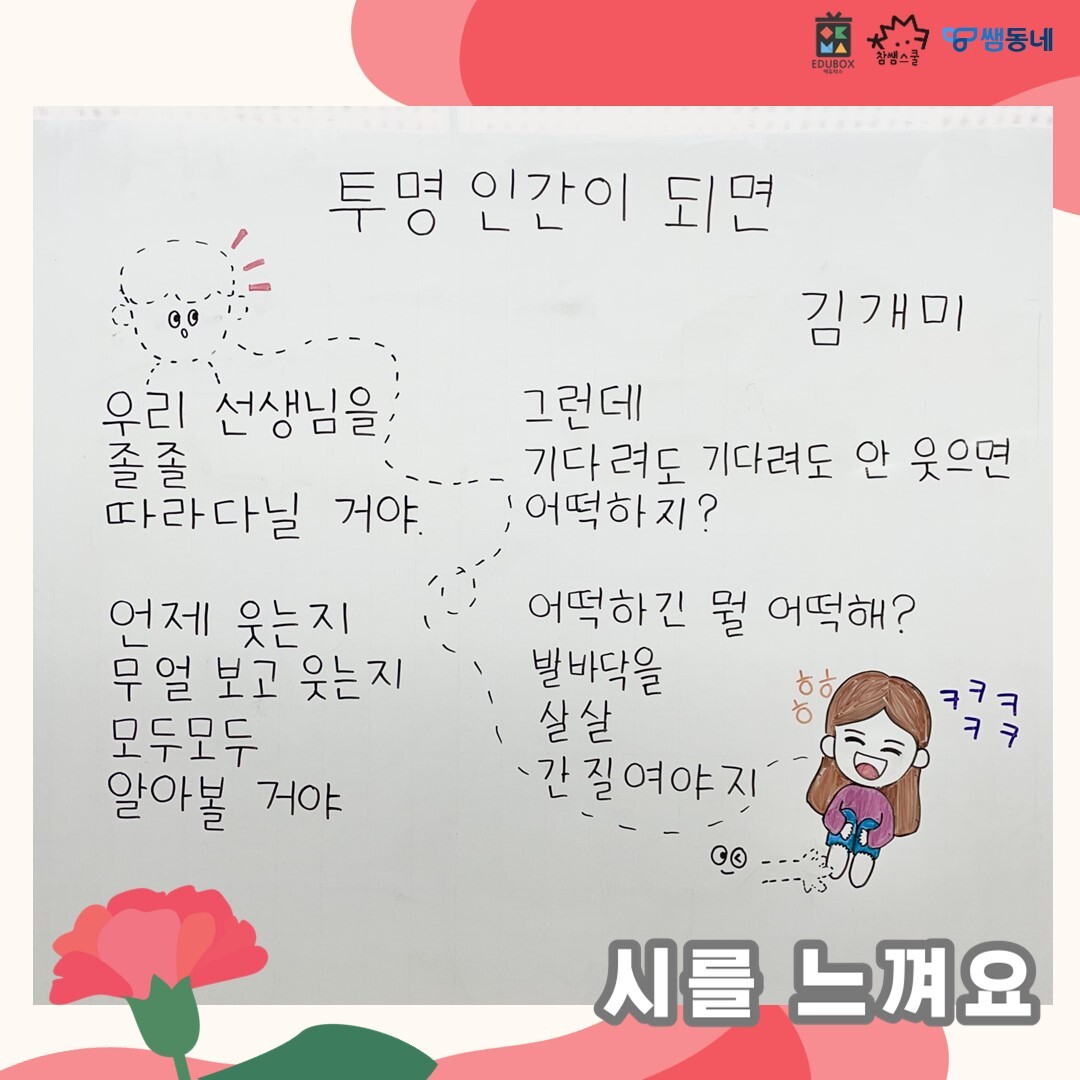 EDUBOX
에듀박스
참쌤스쿨
쌤동네
투명인간이 되면
김개미
우리 선생님을
졸졸
따라다닐 거야.
언제 웃는지
무얼 보고 웃는지
모두모두
알아볼 거야
그런데
기다려도 기다려도 안 웃으면
어떡하지?
어떡하긴 뭘 어떡해?
발바닥을
살살
간질여야지
ㅎㅎ
ㅎ
ㅋㅋㅋ
ㅋㅋ
시를 느껴요